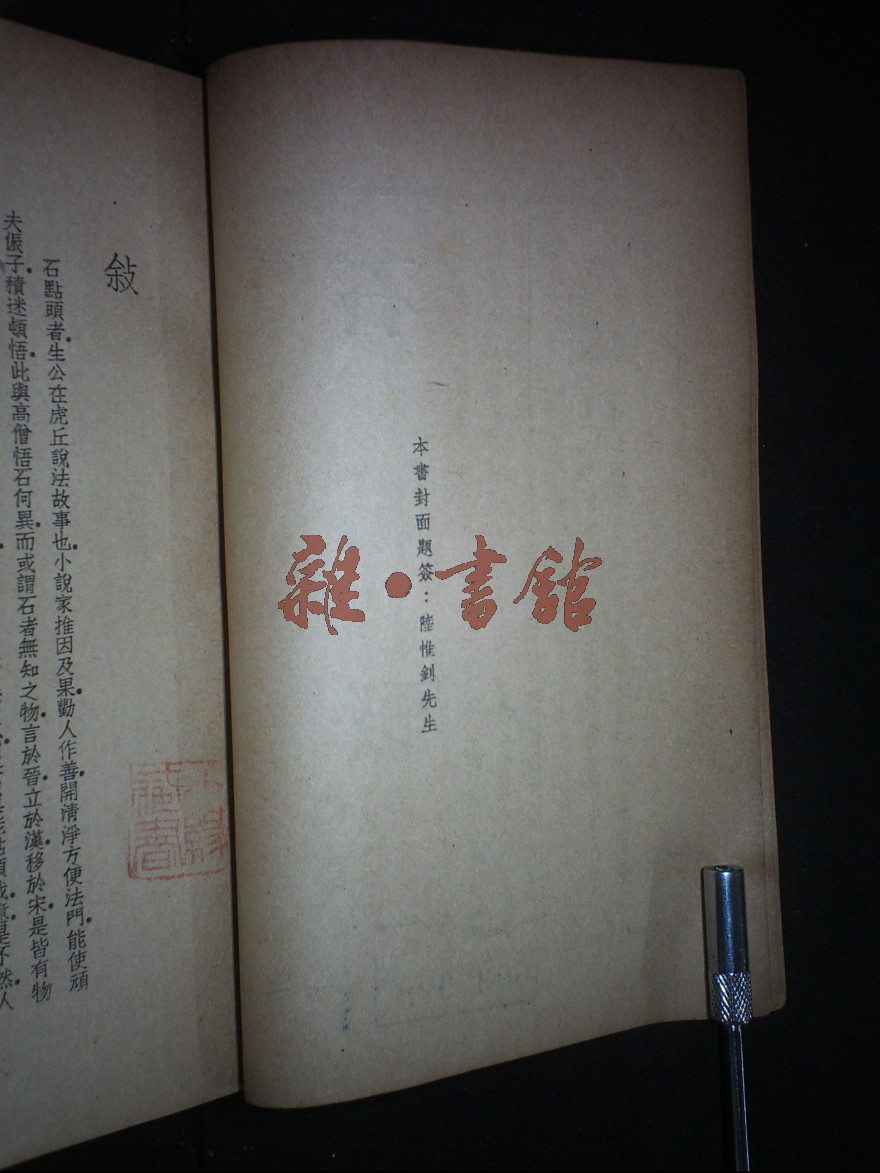 本書封面題簽：陸惟釗先生
雜·書館
敍
石點頭者生公在虎丘說法故事也小說家推因及果勸人作善開清淨方便法門能使頑
夫倀子積迷頓悟此與高僧悟石何異而或謂石者無知之物言於晉立於漢移於宋是皆有物
藏書